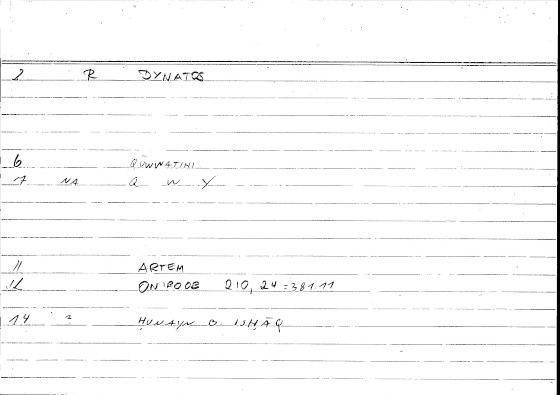 8 R DYNATOS
6 QUWWATIHI
7 NA Q W Y
11 ARTEM
12 ONIROCR 210, 24 = 381.11
14 = ḤUNAYN B. ISḤĀQ